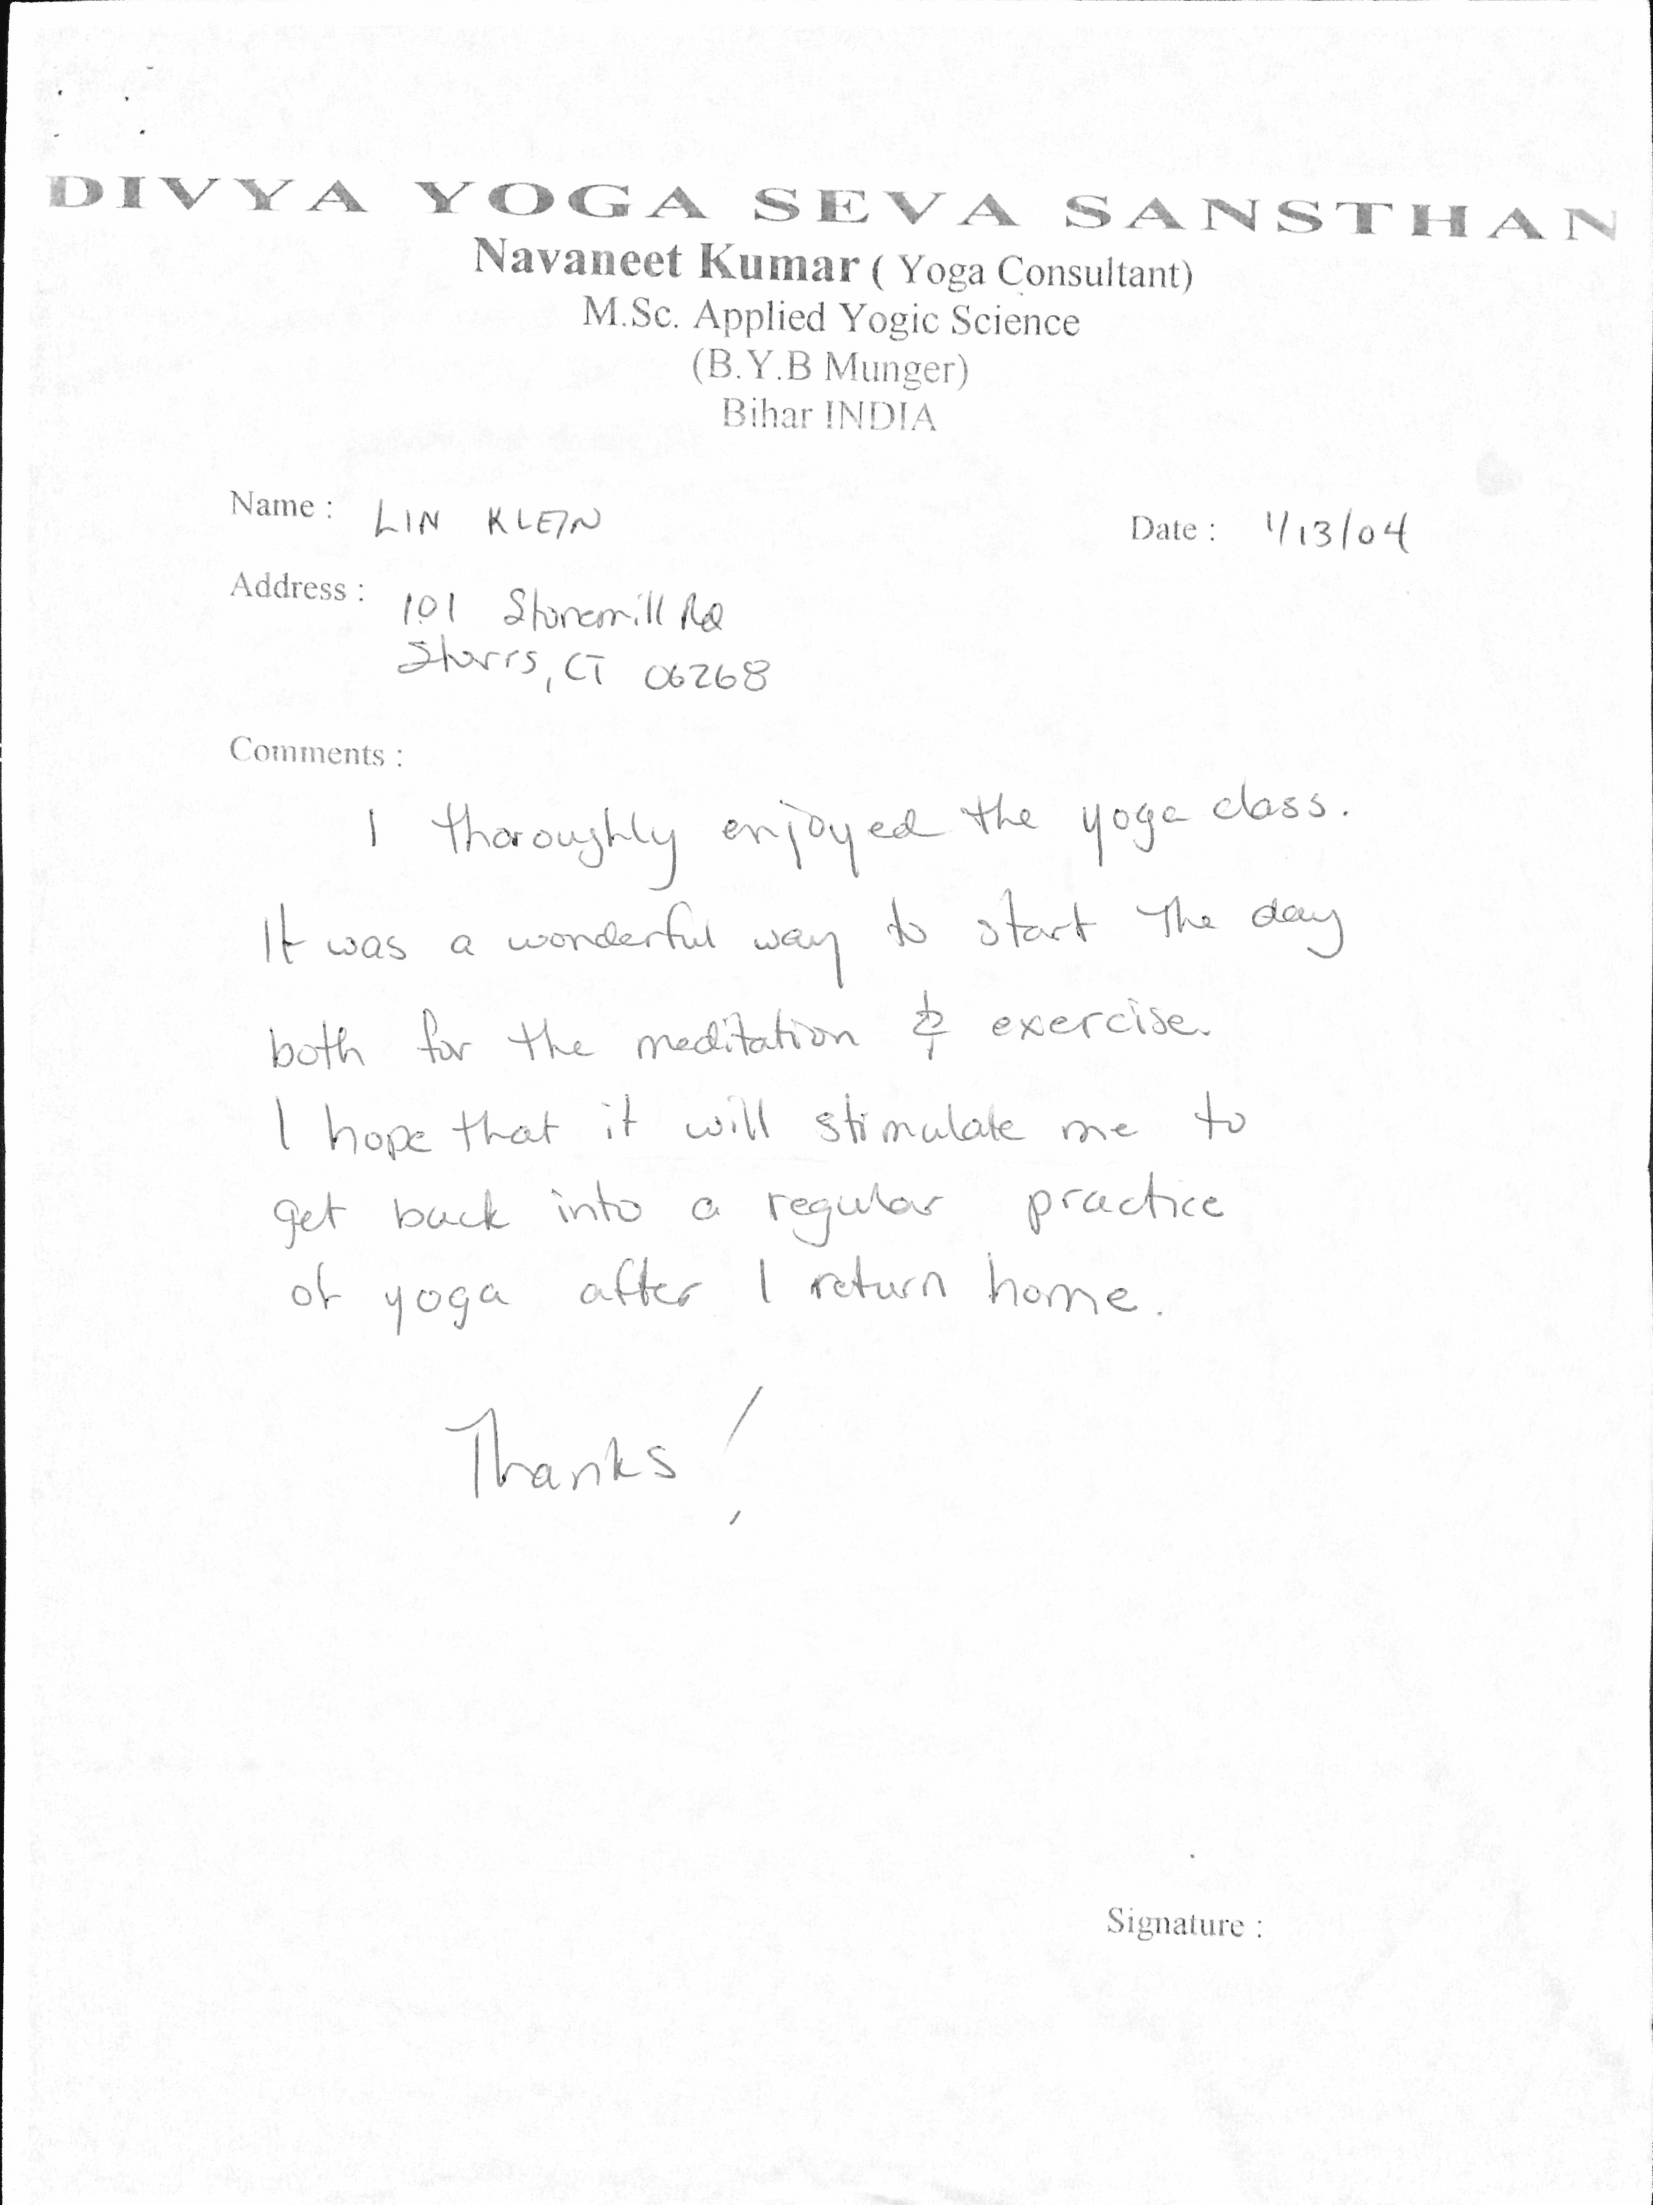 DIVYA YOGA SEVA SANSTHAN
Navaneet Kumar ( Yoga Consultant)
M.Sc. Applied Yogic Science
(B.Y.B Munger)
Bihar INDIA
Name : LIN KLEIN
Date : 1/13/04
Address : 101 Stonemill Rd
Storrs, CT 06268
Comments :
I thoroughly enjoyed the yoga class.
It was a wonderful way to start the day
both for the meditation & exercise.
I hope that it will stimulate me to
get back into a regular practice
of yoga after I return home.
Thanks!
Signature :